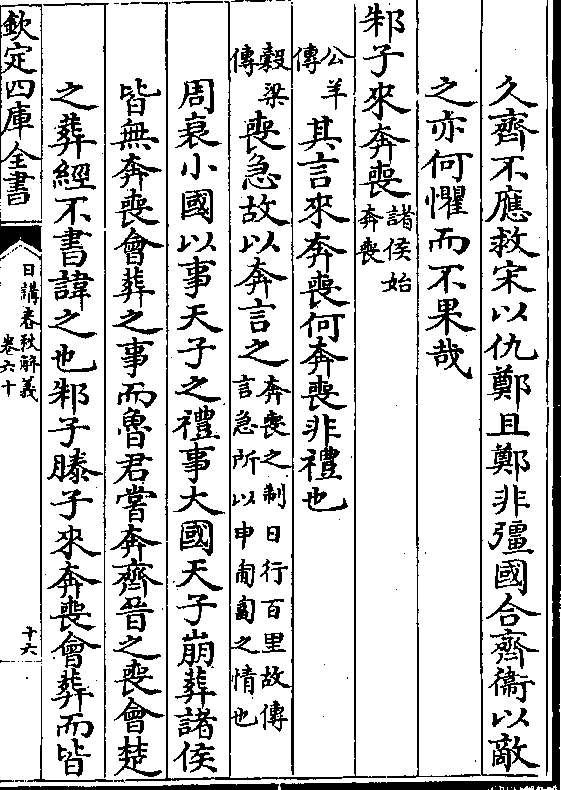 久齊不應救宋以仇鄭且鄭非彊國合齊衞以敵
之亦何懼而不果哉
邾子來奔喪諸侯始奔喪
公羊傳其言來奔喪何奔喪非禮也
穀梁傳喪急故以奔言之奔喪之制日行百里故傳言急所以申匍匐之情也
周衰小國以事天子之禮事大國天子崩葬諸侯
皆無奔喪會葬之事而魯君嘗奔齊晉之喪會楚
之葬經不書諱之也邾子滕子來奔喪會葬而皆
欽定四庫全書
日講春秋解義
卷六十
十六